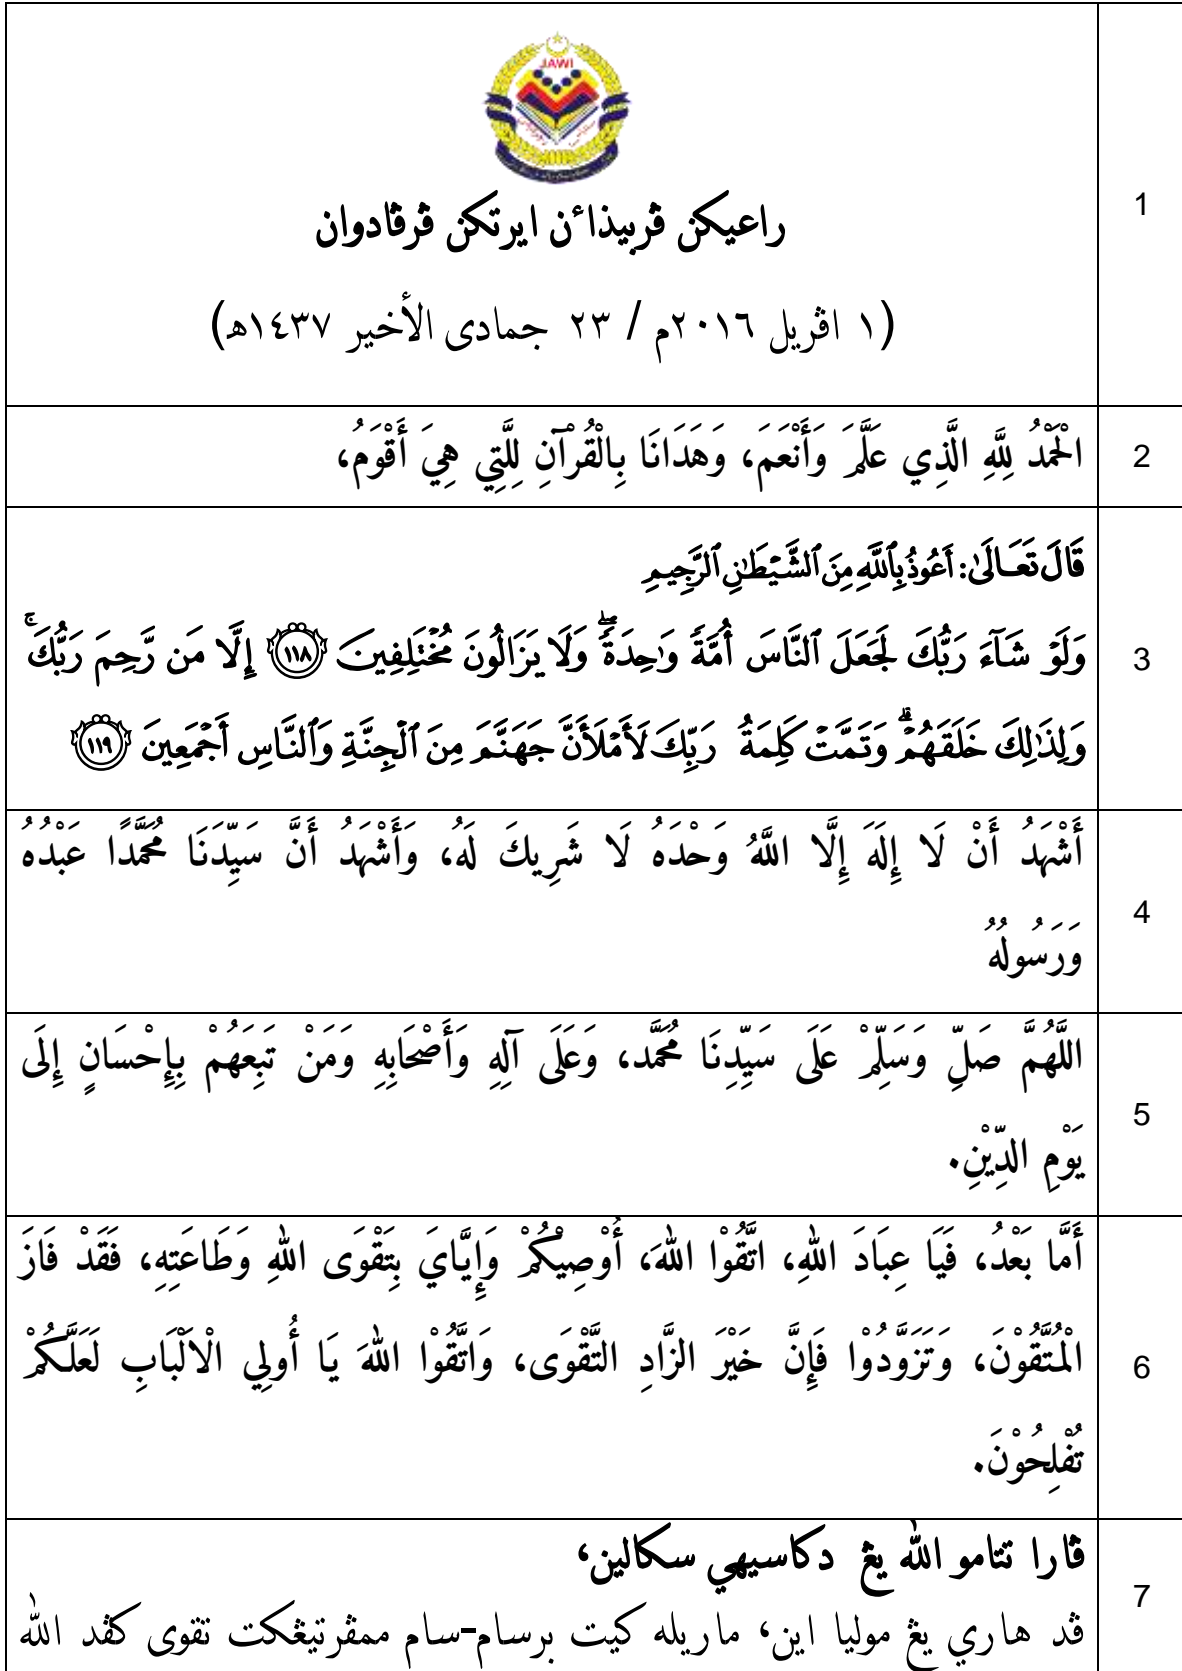 JAWI
1
راعيكن ڤربيذاءن ايرتكن ڤرڤادوان
(١ اڤريل ٢٠١٦م / ٢٣ جمادى الأخير ١٤٣٧هـ)
2
الْحَمْدُ لِلَّهِ الَّذِي عَلَّمَ وَأَنْعَمَ، وَهَدَانَا بِالْقُرْآنِ لِلَّتِي هِيَ أَقْوَمُ،
3
قَالَ تَعَالَىٰ: أَعُوذُ بِٱللَّهِ مِنَ ٱلشَّيْطَٰنِ ٱلرَّجِيمِ
وَلَوْ شَآءَ رَبُّكَ لَجَعَلَ ٱلنَّاسَ أُمَّةً وَٰحِدَةً ۖ وَلَا يَزَالُونَ مُخْتَلِفِينَ ﴿١١٨﴾ إِلَّا مَن رَّحِمَ رَبُّكَ ۚ
وَلِذَٰلِكَ خَلَقَهُمْ ۗ وَتَمَّتْ كَلِمَةُ رَبِّكَ لَأَمْلَأَنَّ جَهَنَّمَ مِنَ ٱلْجِنَّةِ وَٱلنَّاسِ أَجْمَعِينَ ﴿١١٩﴾
4
أَشْهَدُ أَنْ لَا إِلَهَ إِلَّا اللَّهُ وَحْدَهُ لَا شَرِيكَ لَهُ، وَأَشْهَدُ أَنَّ سَيِّدَنَا مُحَمَّدًا عَبْدُهُ
وَرَسُولُهُ
5
اللَّهُمَّ صَلِّ وَسَلِّمْ عَلَى سَيِّدِنَا مُحَمَّد، وَعَلَى آلِهِ وَأَصْحَابِهِ وَمَنْ تَبِعَهُمْ بِإِحْسَانٍ إِلَى
يَوْمِ الدِّيْنِ.
6
أَمَّا بَعْدُ، فَيَا عِبَادَ اللهِ، اتَّقُوْا اللهَ، أُوْصِيْكُمْ وَإِيَّايَ بِتَقْوَى اللهِ وَطَاعَتِهِ، فَقَدْ فَازَ
الْمُتَّقُوْنَ، وَتَزَوَّدُوْا فَإِنَّ خَيْرَ الزَّادِ التَّقْوَى، وَاتَّقُوْا اللهَ يَا أُولِي الْاَلْبَابِ لَعَلَّكُمْ
تُفْلِحُوْنَ.
7
ڤارا تتامو الله يڠ دكاسيهي سكالين،
ڤد هاري يڠ موليا اين، ماريله كيت برسام-سام ممڤرتيڠكت تقوى كڤد الله